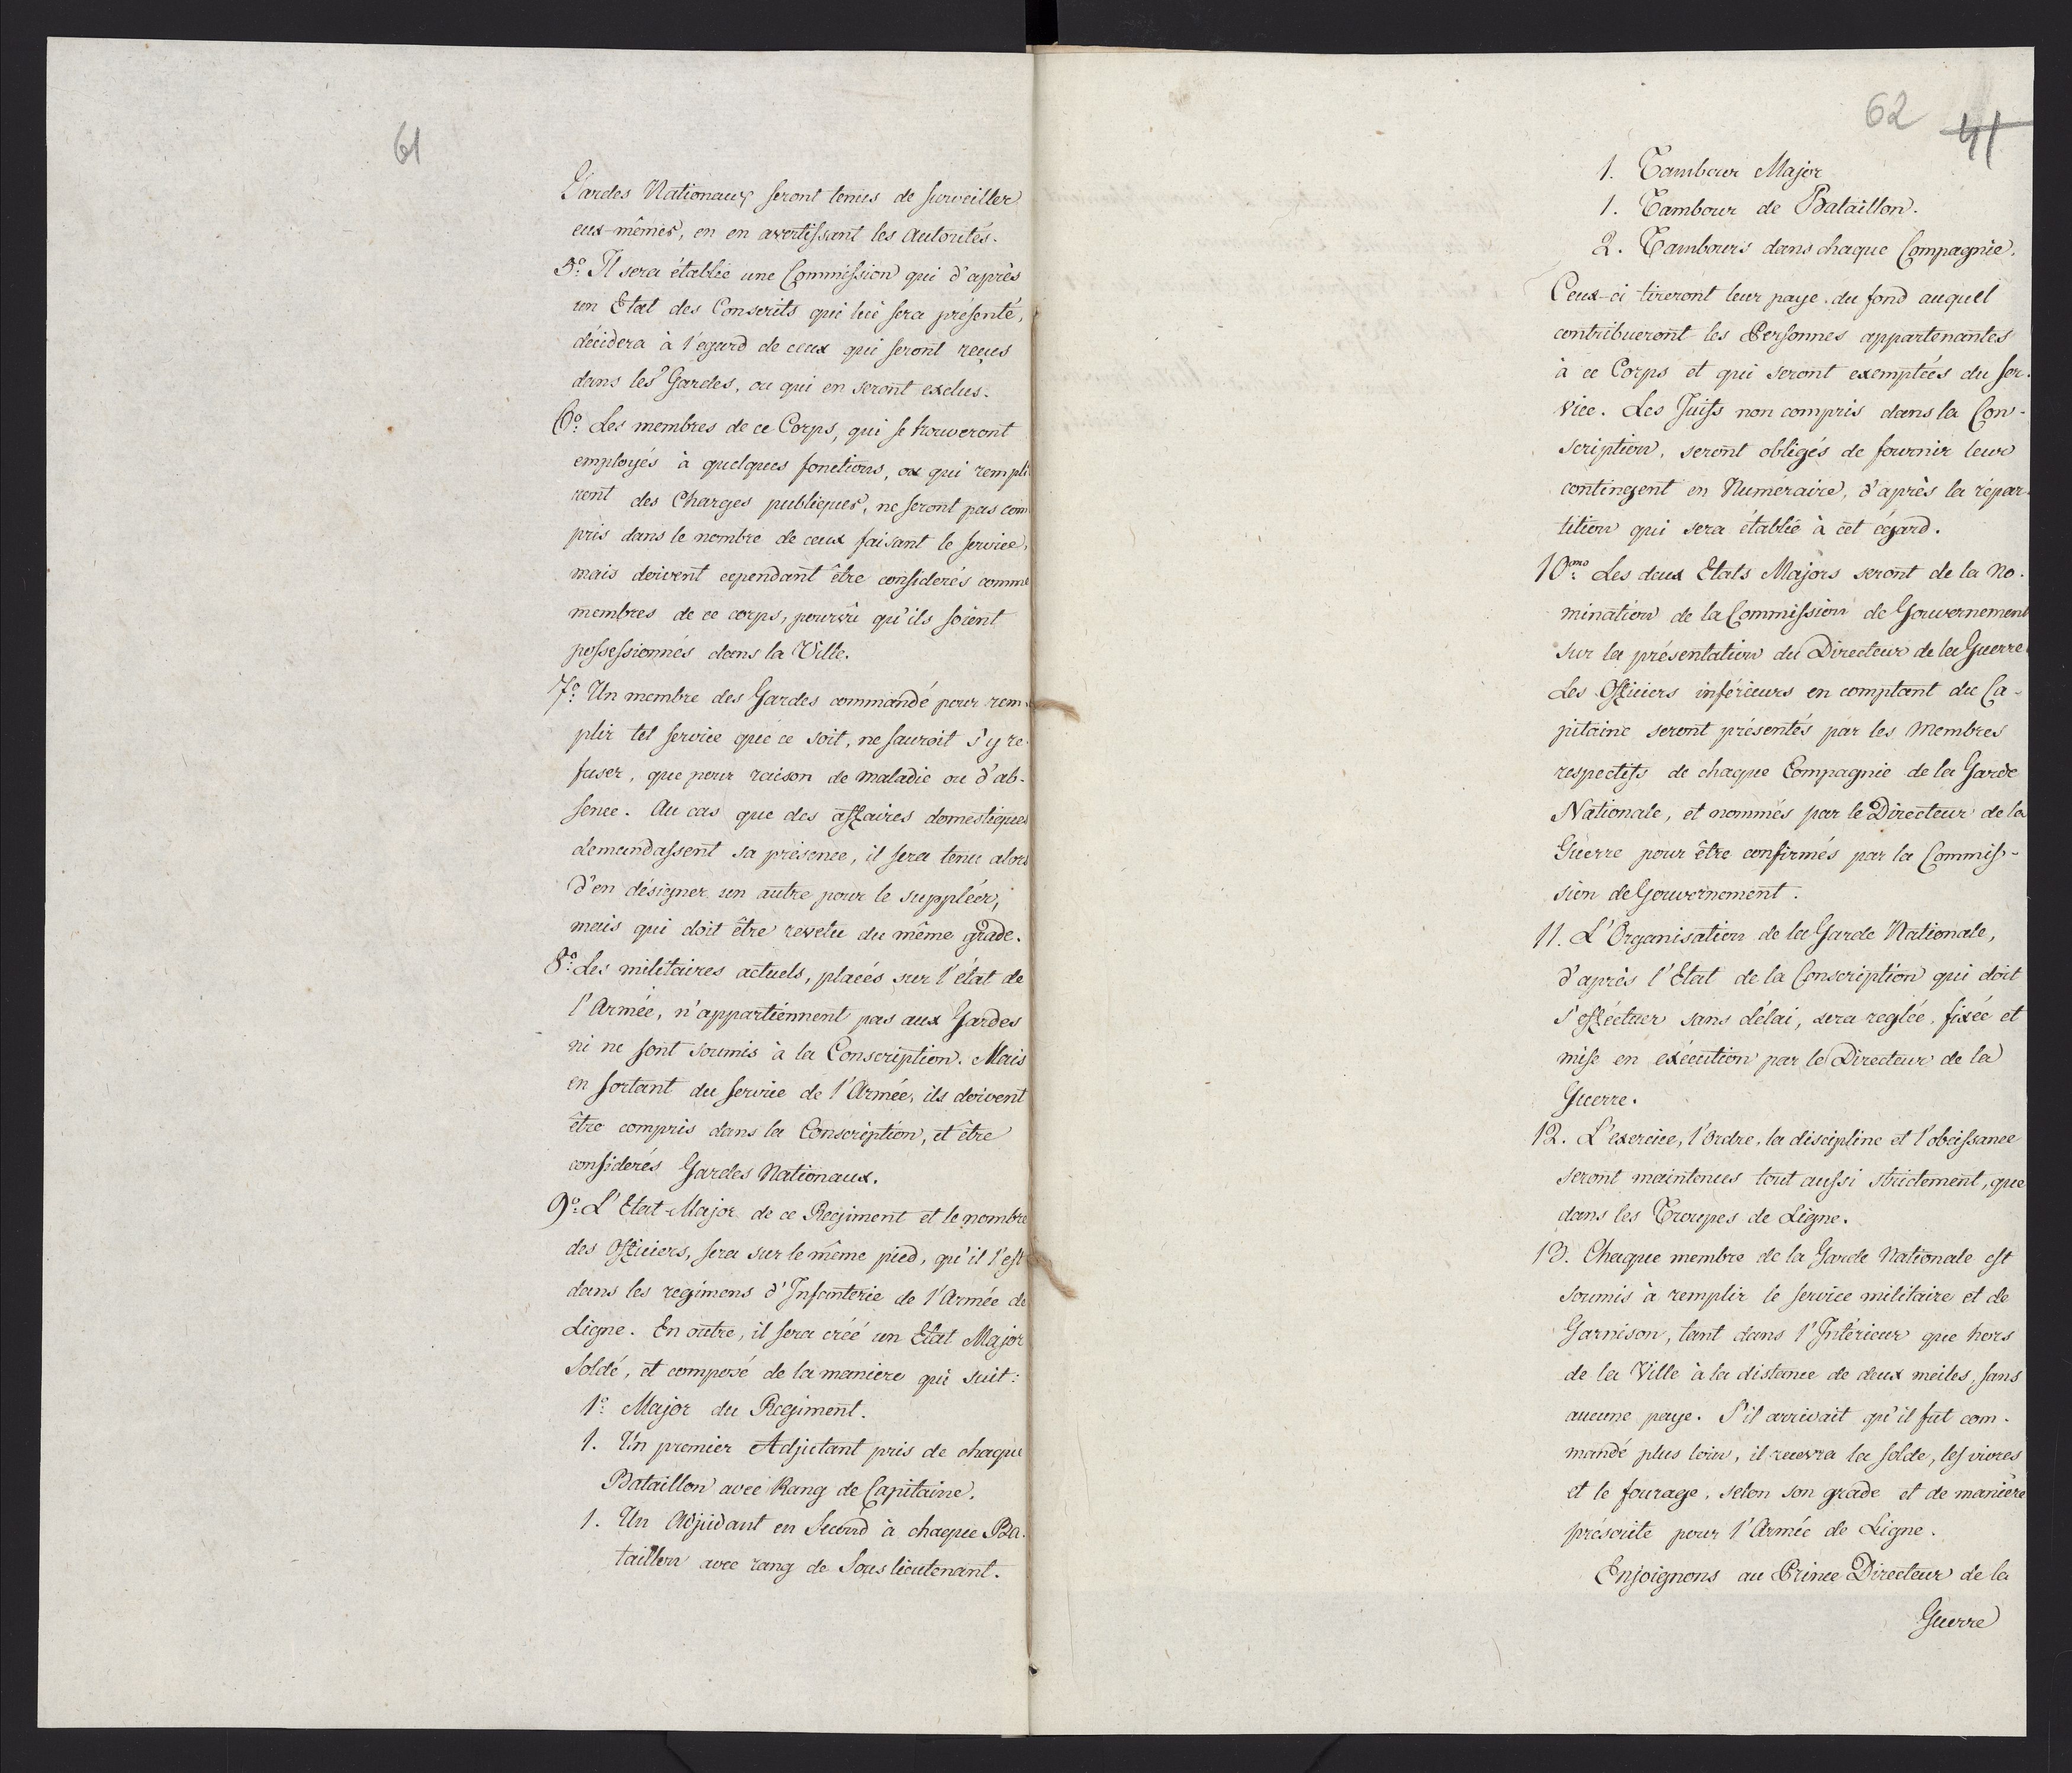 61
Gardes Nationaux seront tenus de surveiller
eux-mêmes, en en avertissant les Autorités.
5º. Il sera établie une Commission qui d'après
un Etat des Conscrits qui lui sera présenté,
décidera à l'égard de ceux qui seront reçus
dans les Gardes, ou qui en seront exclus.
6º. Les membres de ce Corps, qui se trouveront
employés à quelques fonctions, ou qui rempli
ront des Charges publiques, ne seront pas com
pris dans le nombre de ceux faisant le service,
mais doivent cependant être considerés comme
membres de ce corps, pourvû qu'ils soient
possessionnés dans la Ville.
7º. Un membre des Gardes commandé pour rem-
plir tel service que ce soit, ne sauroit s'y re-
fuser, que pour raison de maladie ou d'ab-
sence. Au cas que des affaires domestiques
demandassent sa présence, il sera tenu alors
d'en désigner un autre pour le suppléer,
mais qui doit être revetu du même grade.
8º. Les militaires actuels, placés sur l'état de
l'Armée, n'appartiennent pas aux Gardes
ni ne sont soumis à la Conscription. Mais
en sortant du service de l'Armée, ils doivent
être compris dans la Conscription, et être
considerés Gardes Nationaux.
9º. L'Etat-Major de ce Regiment et le nombre
des Officiers, sera sur le même pied, qu'il l'est
dans les regimens d'Infanterie de l'Armée de
Ligne. En outre, il sera créé un Etat Major
soldé, et composé de la maniere qui suit:
1º. Major du Regiment.
1. Un premier Adjutant pris de chaque
Bataillon avec Rang de Capitaine.
1. Un Adjudant en Second à chaque Ba-
taillon avec rang de Sous lieutenant.
62
41
1. Tambour Major
1. Tambour de Bataillon.
2. Tambours dans chaque Compagnie.
Ceux-ci tireront leur paye du fond auquel
contribueront les Personnes appartenantes
à ce Corps et qui seront exemptées du ser-
vice. Les Juifs non compris dans la Con-
scription, seront obligés de fournir leur
contingent en Numéraire, d'après la répar-
tition qui sera établie à cet égard.
10mo. Les deux Etats Majors seront de la No-
mination de la Commission de Gouvernement
sur la présentation du Directeur de la Guerre.
Les Officiers inférieurs en comptant du Ca-
pitaine seront présentés par les Membres
respectifs de chaque Compagnie de la Garde
Nationale, et nommés par le Directeur de la
Guerre pour être confirmés par la Commis-
sion de Gouvernement.
11. L'Organisation de la Garde Nationale,
d'après l'Etat de la Conscription qui doit
s'efféctuer sans délai, sera reglée, fixée et
mise en exécution par le Directeur de la
Guerre.
12. L'exercice, l'ordre, la discipline et l'obeissance
seront maintenues tout aussi strictement, que
dans les Troupes de Ligne.
13. Chaque membre de la Garde Nationale est
soumis à remplir le service militaire et de
Garnison, tant dans l'Intérieur que hors
de la Ville à la distance de deux meiles, sans
aucune paye. S'il arrivait qu'il fut com-
mandé plus loin, il recevra la solde, les vivres
et le fourage, selon son grade et de manière
préscrite pour l'Armée de Ligne.
Enjoignons au Prince Directeur de la
Guerre